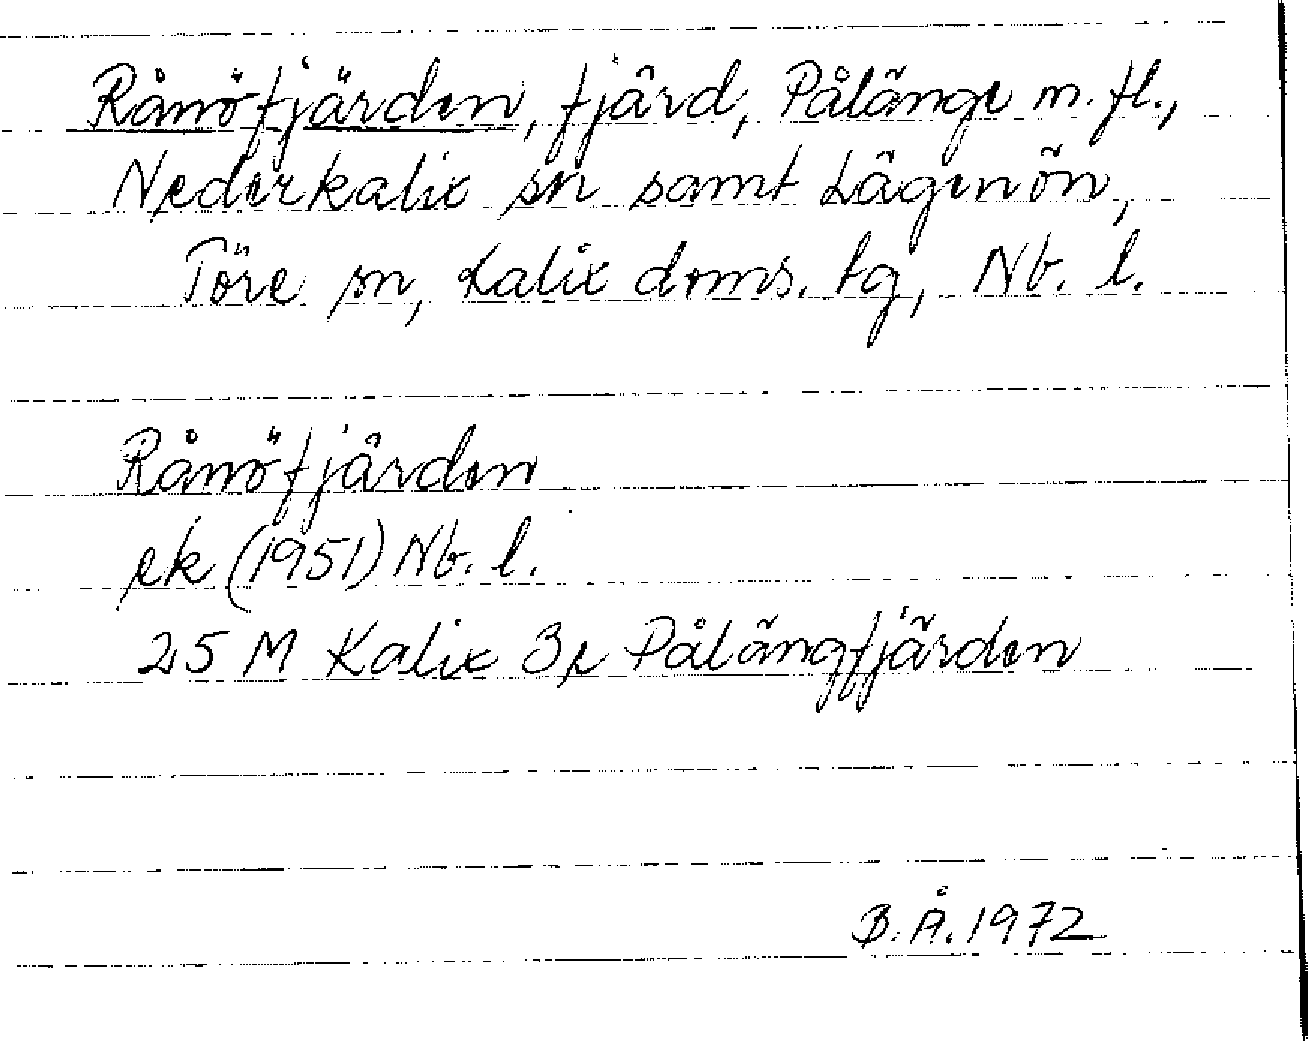 Rånöfjärden, fjärd, Pålänge m.fl.,
Nederkalix sn samt Lägenön,
Töre sn, Kalix doms. tg, Nb. l.
Rånöfjärden
ek (1951) Nb. l.
25 M Kalix 3e Pålängfjärden
B.Å. 1972